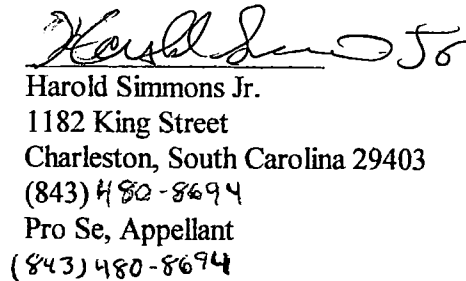 Harold Simmons Jr
Harold Simmons Jr.
1182 King Street
Charleston, South Carolina 29403
(843) 480-8694
Pro Se, Appellant
(843) 480-8694